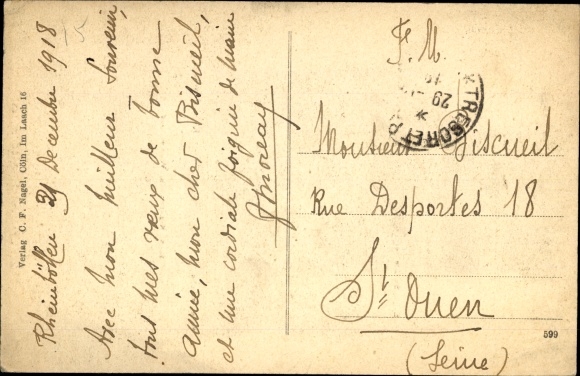 Rheinböllen 29 Decembre 1918
Avec mon meilleur souvenir,
tous mes vœux de bonne
année, mon cher Biscueil,
et une cordiale poignée de main
JMoreau
F. M.
TRESOR ET P
29
Monsieur Biscueil
Rue Desportes 18
St Ouen
(Seine)
599
Verlag C. F. Nagel, Cöln, Im Laach 16